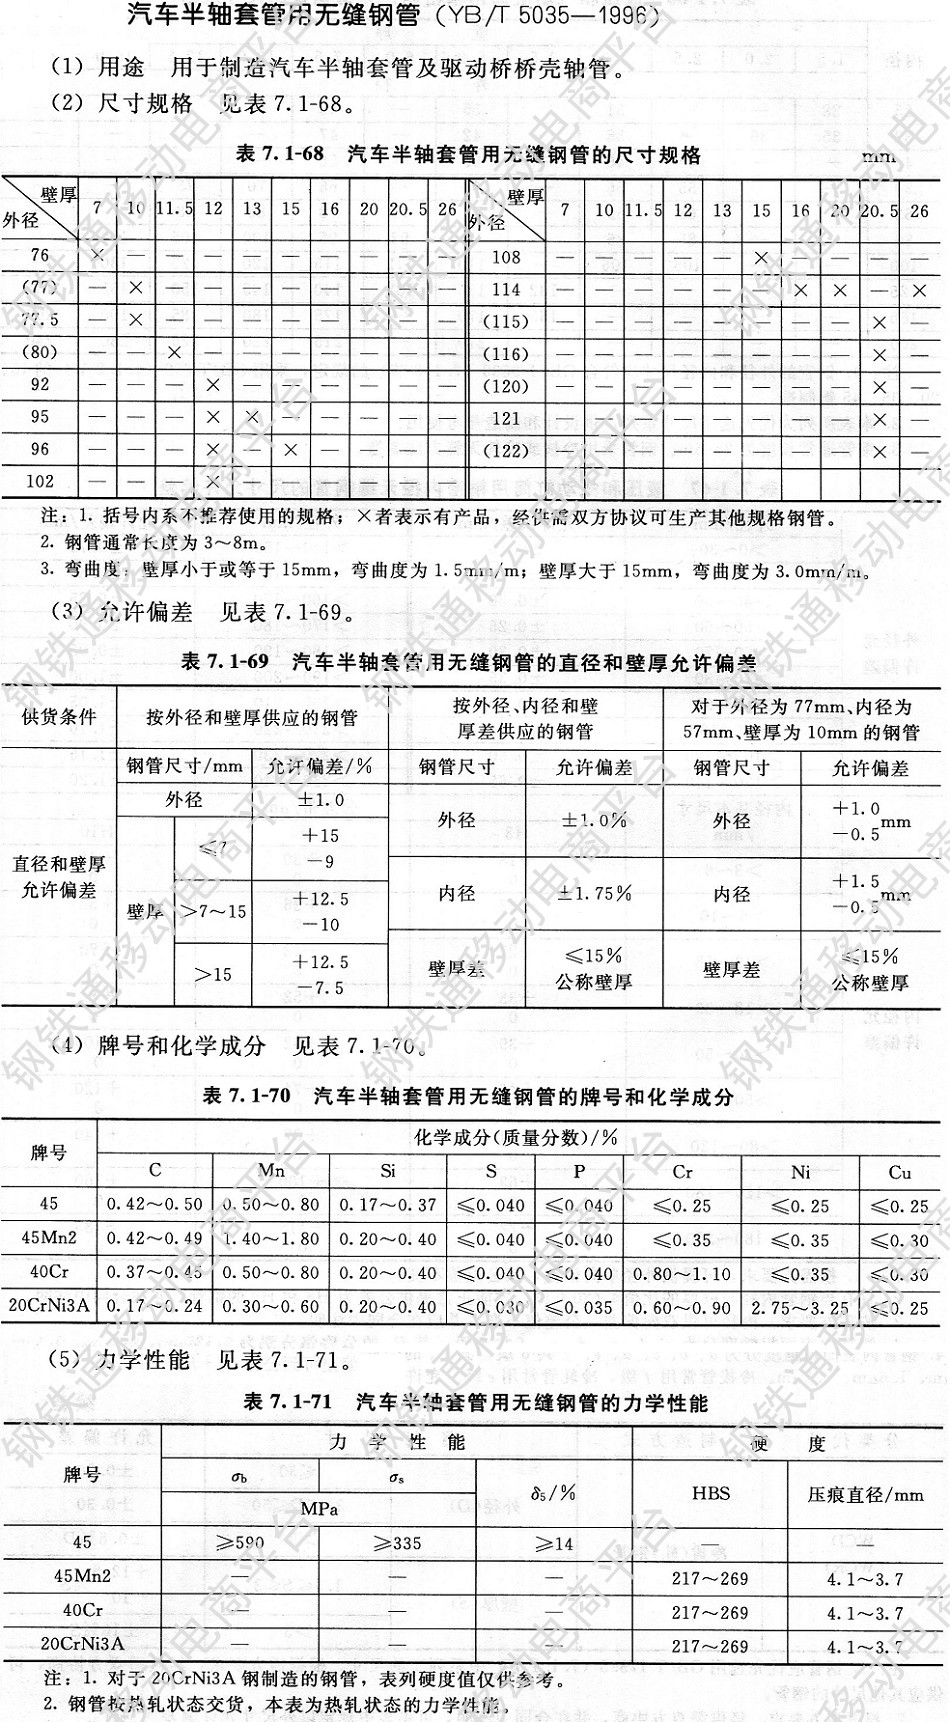 汽车半轴套管用无缝钢管（YB/T 5035—1996）
（1）用途 用于制造汽车半轴套管及驱动桥桥壳轴管。
（2）尺寸规格 见表 7.1-68。
表 7.1-68 汽车半轴套管用无缝钢管的尺寸规格 mm
壁厚 外径 7 10 11.5 12 13 15 16 20 20.5 26 壁厚 外径 7 10 11.5 12 13 15 16 20 20.5 26
76 × — — — — — — — — — 108 — — — — — × — — — —
(77) — × — — — — — — — — 114 — — — — — — × × — ×
77.5 — × — — — — — — — — (115) — — — — — — — — × —
(80) — — × — — — — — — — (116) — — — — — — — — × —
92 — — — × — — — — — — (120) — — — — — — — — × —
95 — — — × × — — — — — 121 — — — — — — — — × —
96 — — — × — × — — — — (122) — — — — — — — — × —
102 — — — × — — — — — —
注：1. 括号内系不推荐使用的规格；×者表示有产品，经供需双方协议可生产其他规格钢管。
2. 钢管通常长度为 3～8m。
3. 弯曲度：壁厚小于或等于 15mm，弯曲度为 1.5mm/m；壁厚大于 15mm，弯曲度为 3.0mm/m。
（3）允许偏差 见表 7.1-69。
表 7.1-69 汽车半轴套管用无缝钢管的直径和壁厚允许偏差
供货条件 按外径和壁厚供应的钢管 按外径、内径和壁厚差供应的钢管 对于外径为 77mm、内径为 57mm、壁厚为 10mm 的钢管
直径和壁厚允许偏差 钢管尺寸/mm 允许偏差/% 钢管尺寸 允许偏差 钢管尺寸 允许偏差
外径 ±1.0 外径 ±1.0% 外径 +1.0 −0.5 mm
壁厚 ≤7 +15 −9
>7～15 +12.5 −10 内径 ±1.75% 内径 +1.5 −0.5 mm
>15 +12.5 −7.5 壁厚差 ≤15% 公称壁厚 壁厚差 ≤15% 公称壁厚
（4）牌号和化学成分 见表 7.1-70。
表 7.1-70 汽车半轴套管用无缝钢管的牌号和化学成分
牌号 化学成分(质量分数)/%
C Mn Si S P Cr Ni Cu
45 0.42～0.50 0.50～0.80 0.17～0.37 ≤0.040 ≤0.040 ≤0.25 ≤0.25 ≤0.25
45Mn2 0.42～0.49 1.40～1.80 0.20～0.40 ≤0.040 ≤0.040 ≤0.35 ≤0.35 ≤0.30
40Cr 0.37～0.45 0.50～0.80 0.20～0.40 ≤0.040 ≤0.040 0.80～1.10 ≤0.35 ≤0.30
20CrNi3A 0.17～0.24 0.30～0.60 0.20～0.40 ≤0.030 ≤0.035 0.60～0.90 2.75～3.25 ≤0.25
（5）力学性能 见表 7.1-71。
表 7.1-71 汽车半轴套管用无缝钢管的力学性能
牌号 力学性能 硬度
σb σs δ5/% HBS 压痕直径/mm
MPa
45 ≥590 ≥335 ≥14 — —
45Mn2 — — — 217～269 4.1～3.7
40Cr — — — 217～269 4.1～3.7
20CrNi3A — — — 217～269 4.1～3.7
注：1. 对于 20CrNi3A 钢制造的钢管，表列硬度值仅供参考。
2. 钢管按热轧状态交货，本表为热轧状态的力学性能。
钢铁通移动电商平台